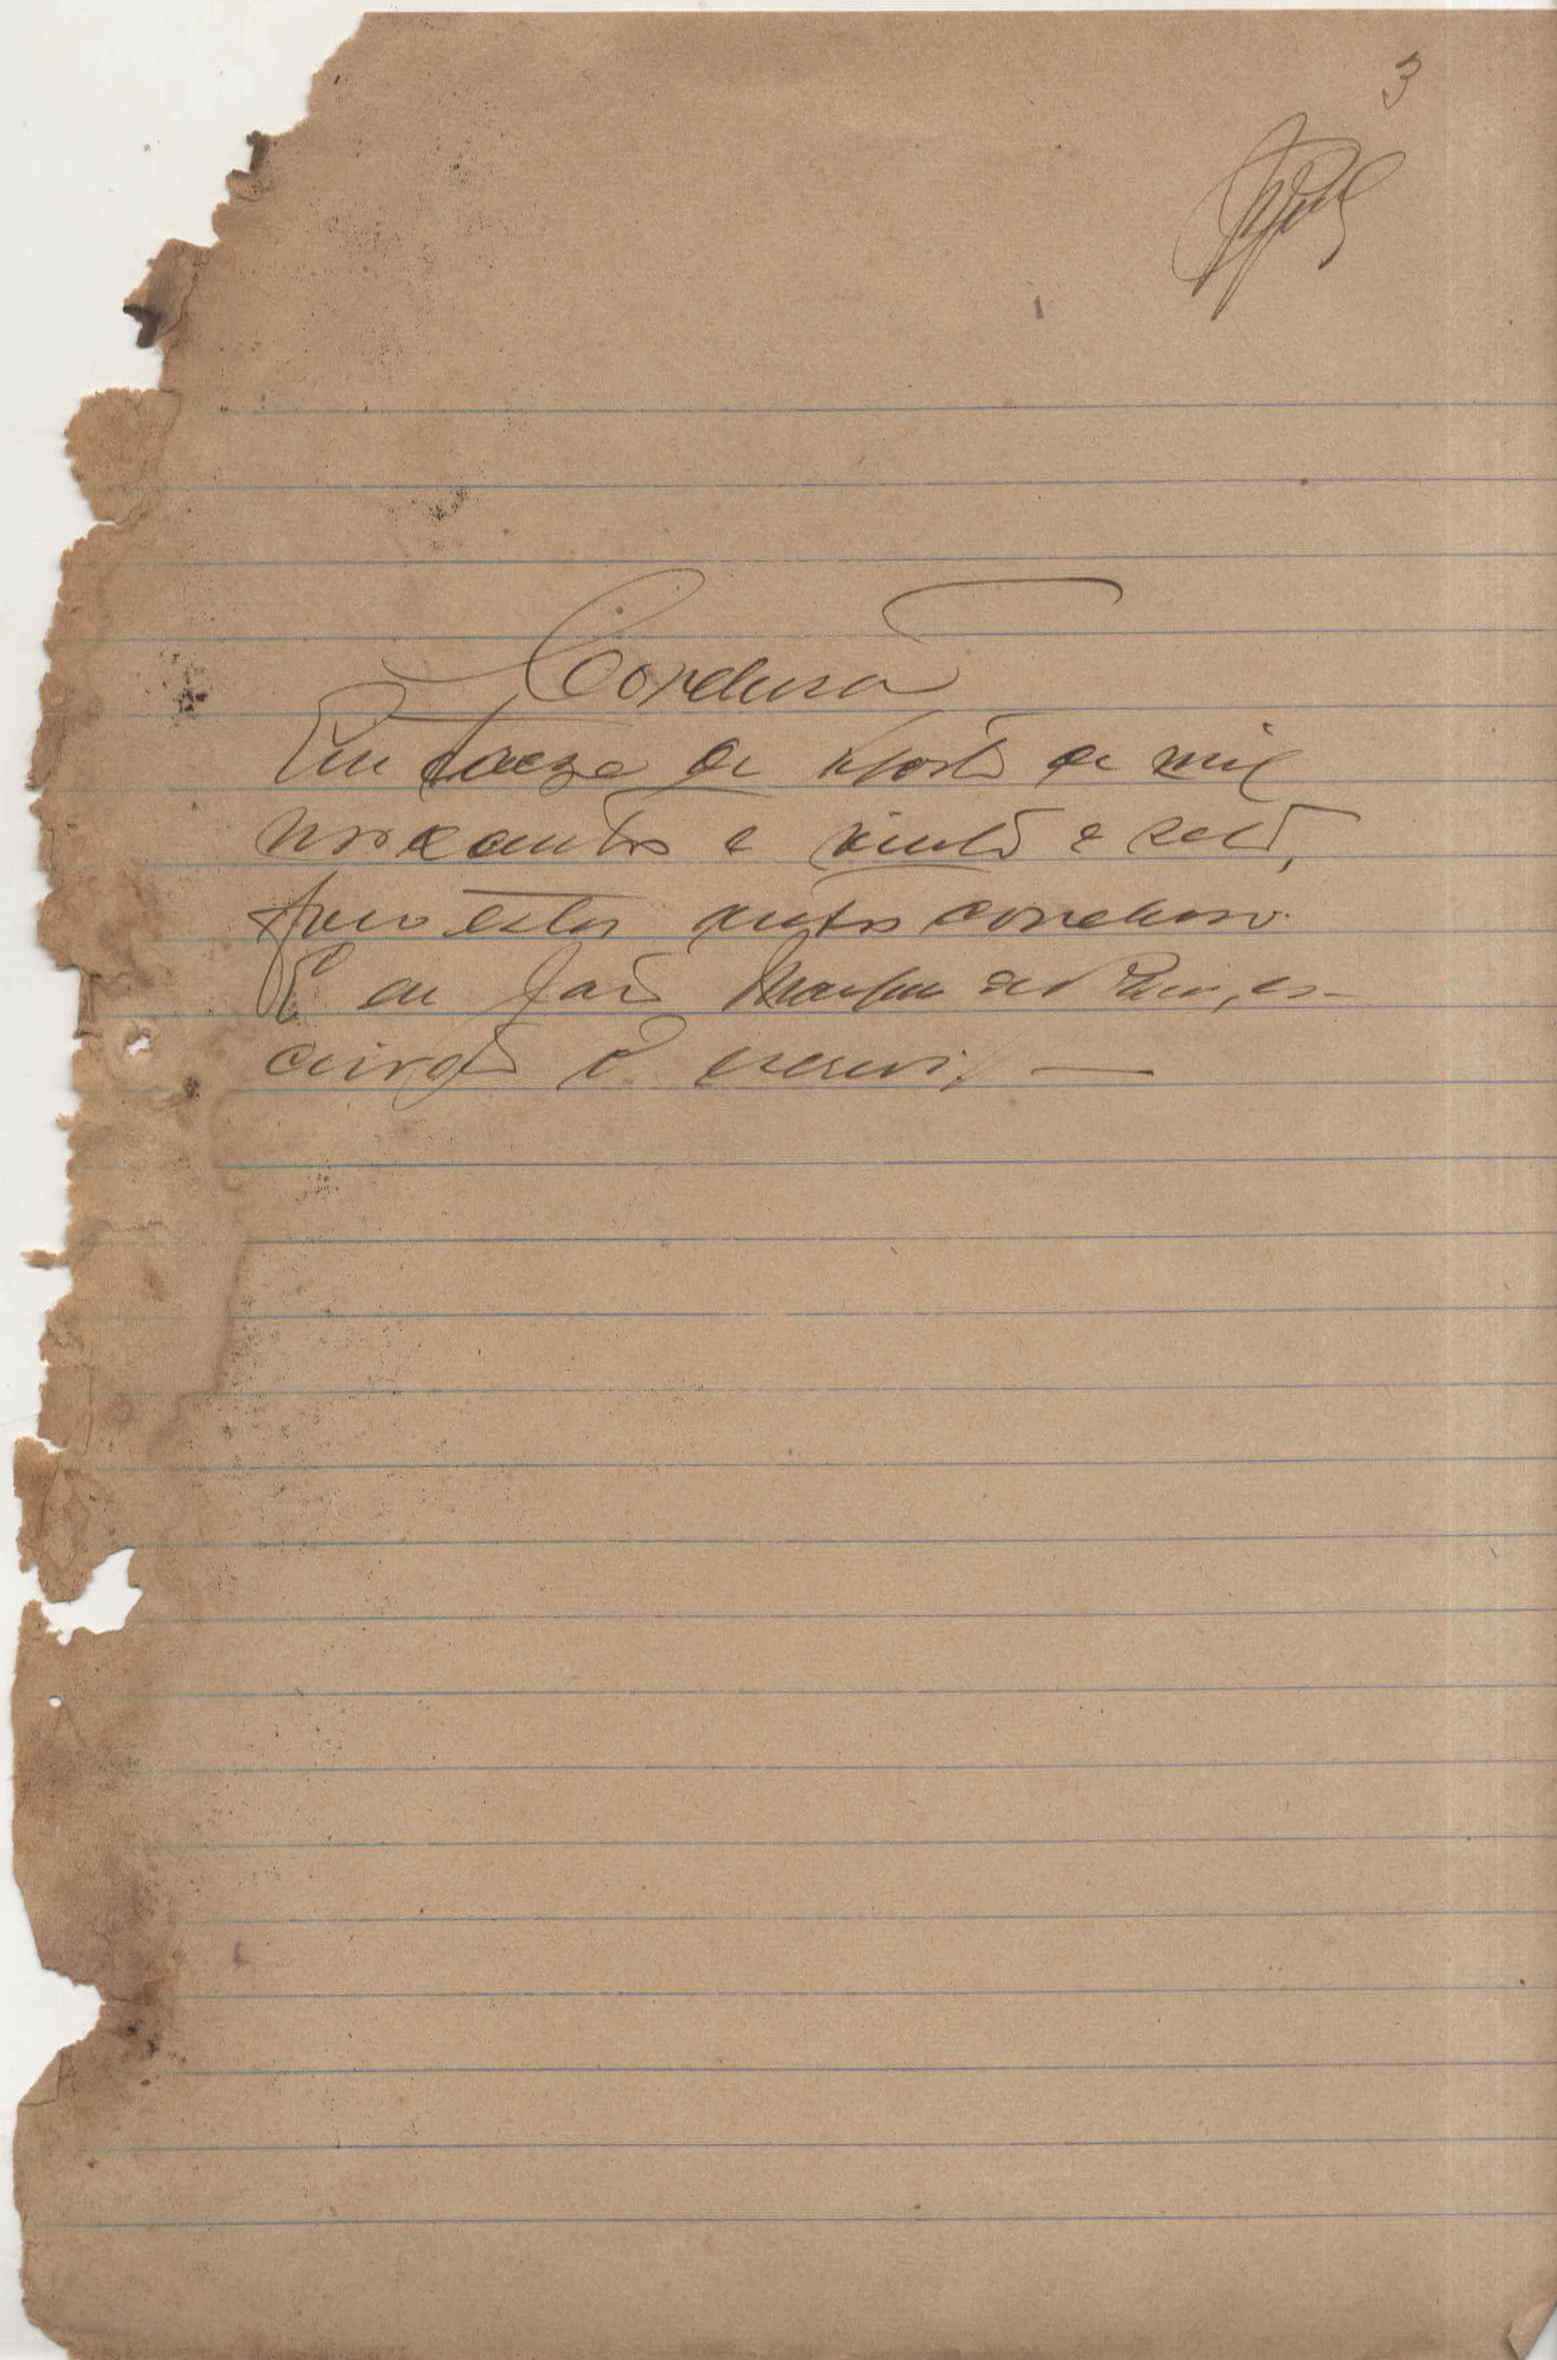 3
Conclusão
Em treze de Agosto de mil
novecentos e vinte e sete,
faço estes autos conclusos.
E eu João es-
crivão o escrevi.